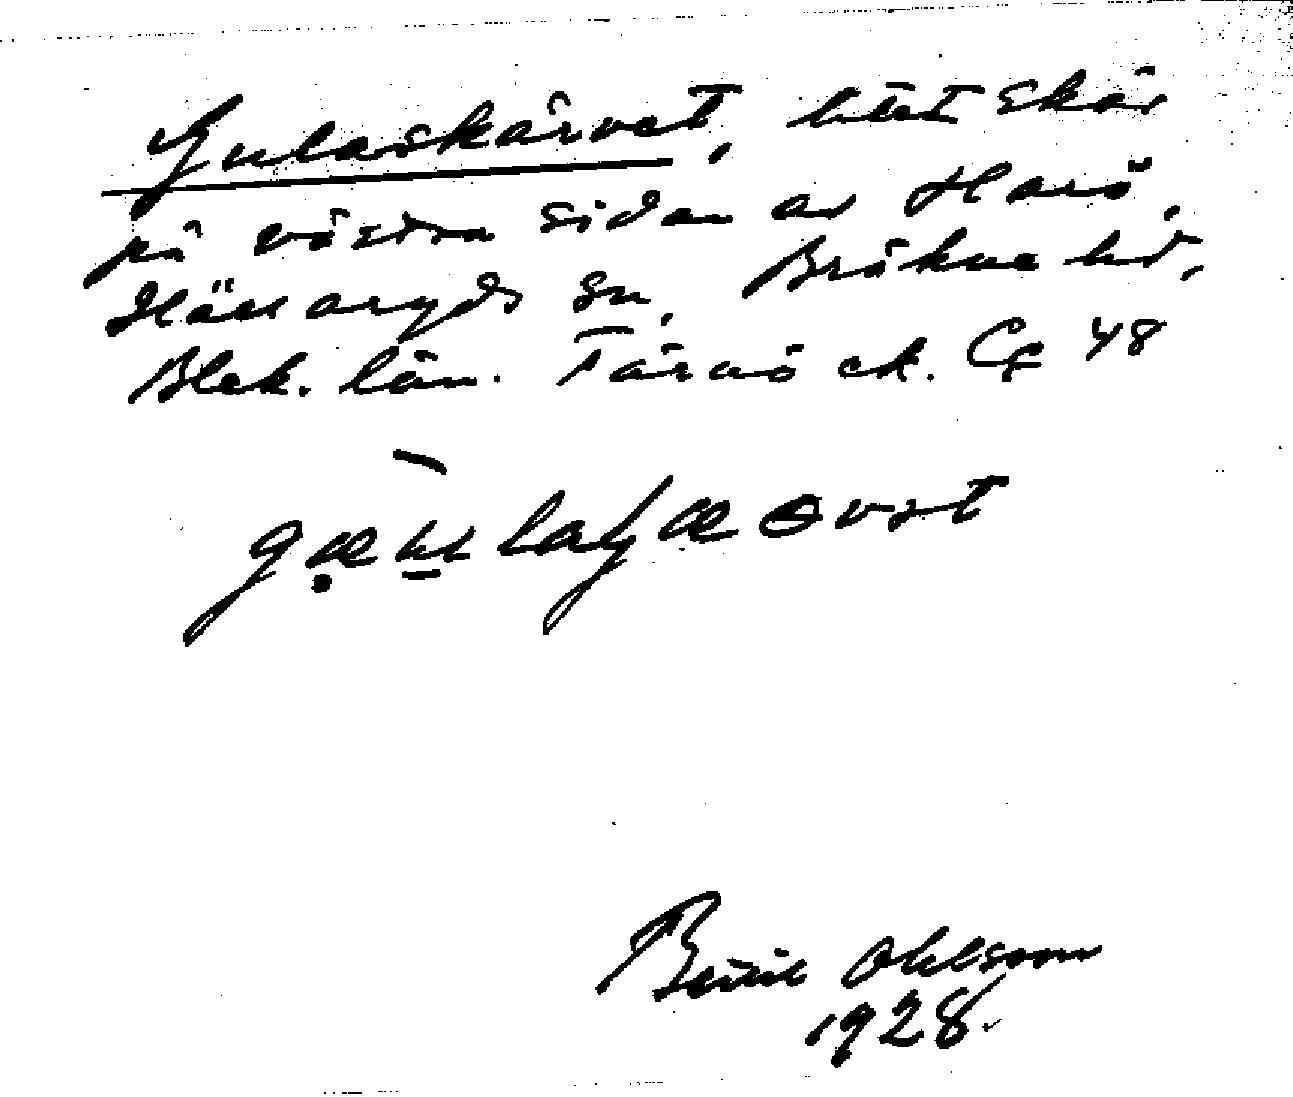 Gulaskärvet, litet skär
på västra sidan av Harö,
Hällaryds sn, Bräkne hd,
Blek. län. Tärnö ek. Cf 48
Bertil Ohlsson
1928.